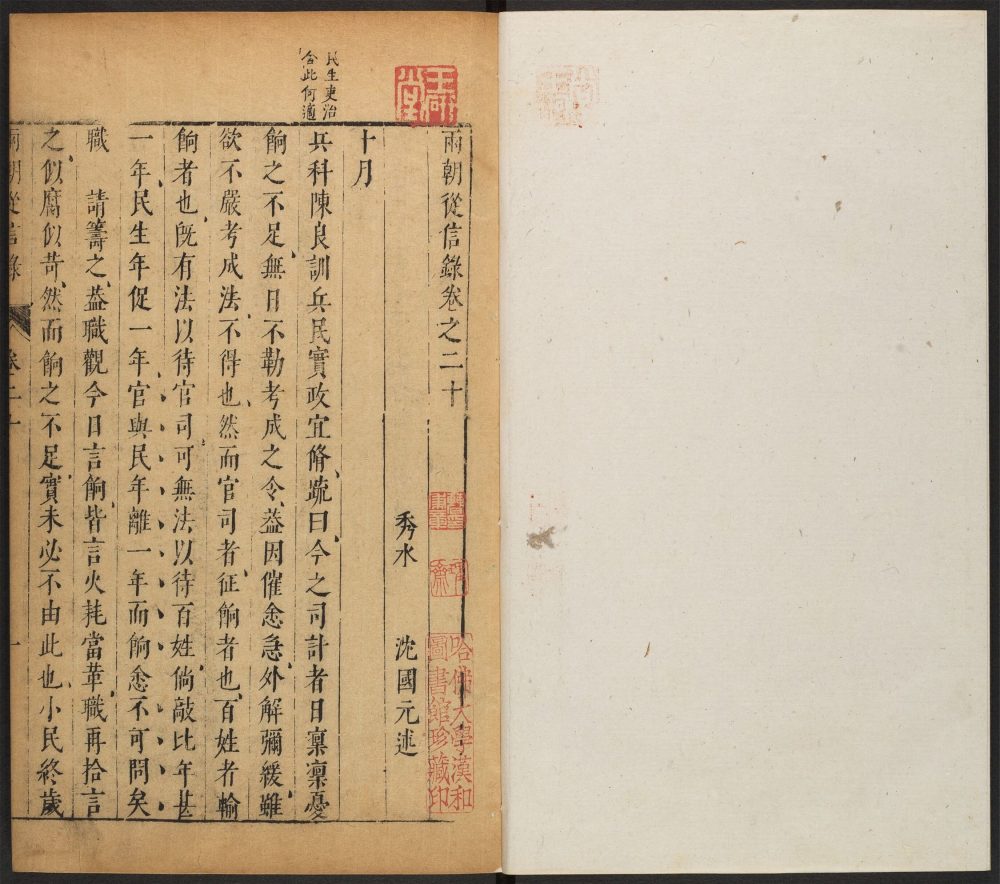 兩朝從信錄卷之二十
秀水 沈國元述
十月
兵科陳良訓兵民實政宜脩疏曰今之司計者日稟稟憂
餉之不足無日不勒考成之令葢因催愈急外解彌緩雖
欲不嚴考成法不得也然而官司者征餉者也百姓者輸
餉者也旣有法以待官司可無法以待百姓倘敲比年甚
一年民生年促一年官與民年離一年而餉愈不可問矣
職 請籌之葢職觀今日言餉皆言火耗當革職再拾言
之似腐似苛然而餉之不足實未必不由此也小民終歲
兩朝從信錄 卷二十 一
民生吏治
舍此何適
哈佛大學漢和
圖書館珍藏印